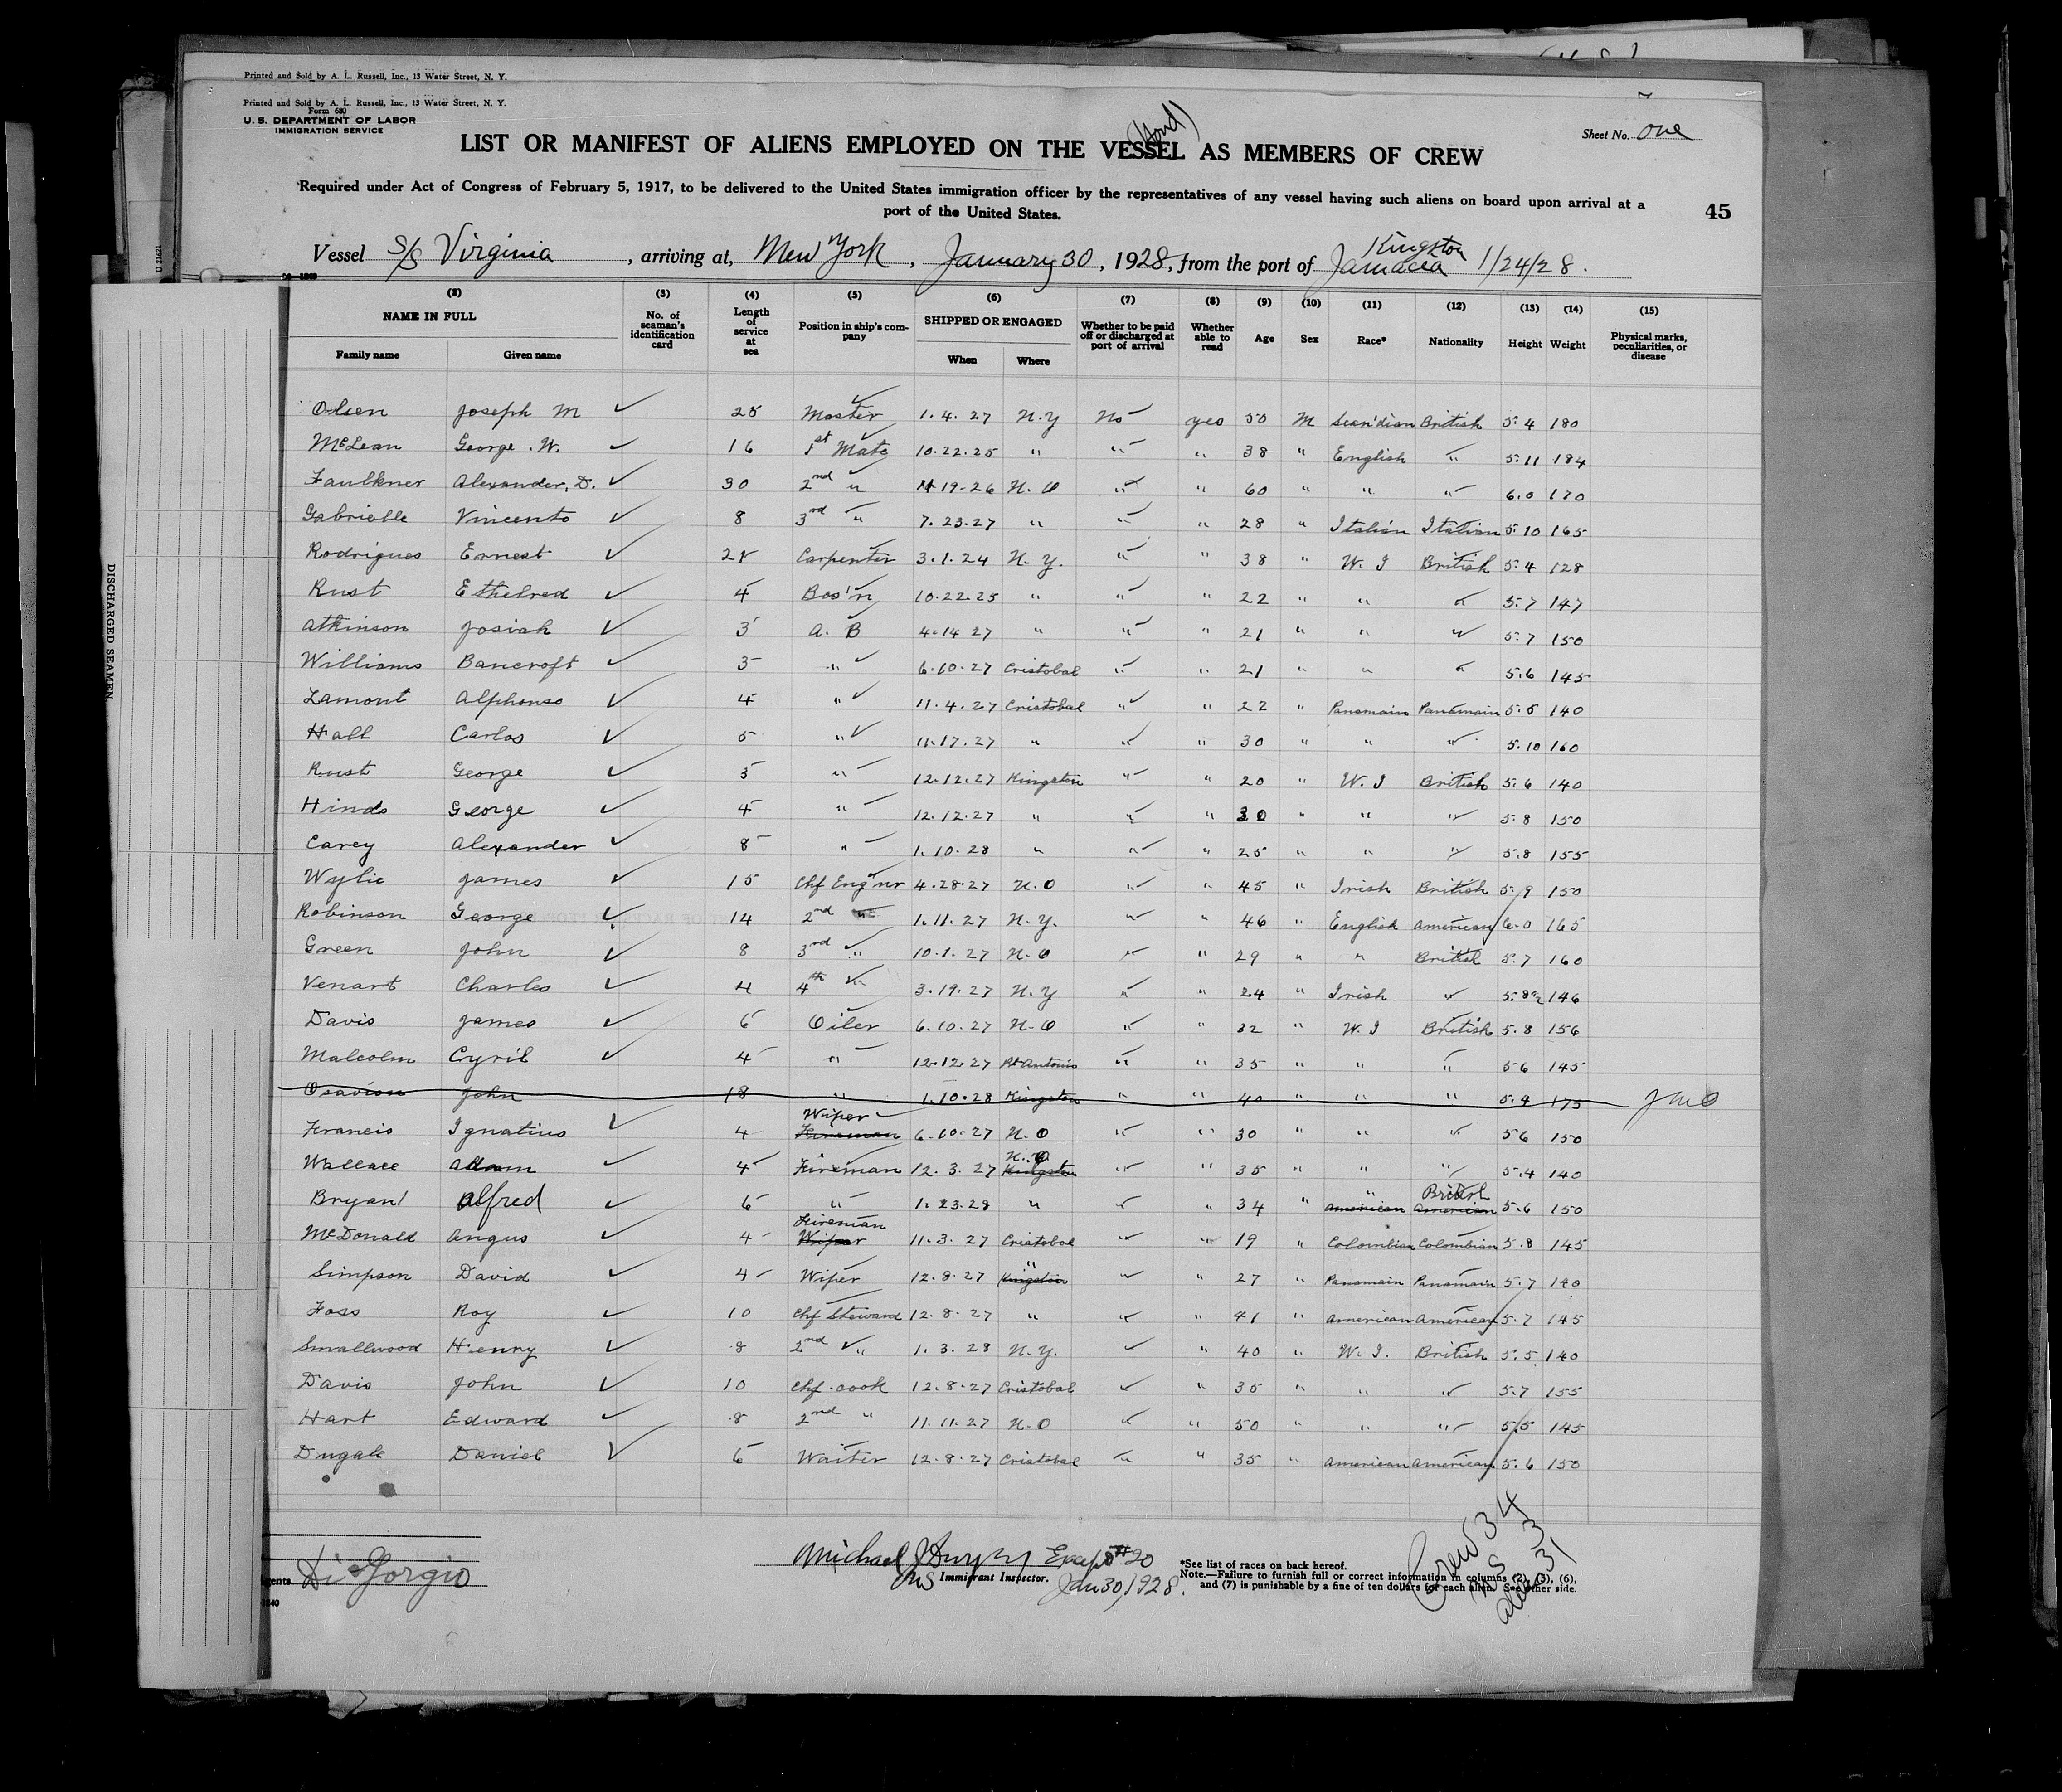 Printed and Sold by A. L. Russell, Inc., 13 Water Street, N. Y.
Printed and Sold by A. L. Russell, Inc., 13 Water Street, N. Y.
Form 680
U. S. DEPARTMENT OF LABOR
IMMIGRATION SERVICE
(Hond)
Sheet No. One
LIST OR MANIFEST OF ALIENS EMPLOYED ON THE VESSEL AS MEMBERS OF CREW
Required under Act of Congress of February 5, 1917, to be delivered to the United States immigration officer by the representatives of any vessel having such aliens on board upon arrival at a
port of the United States.
45
Vessel S/S Virginia, arriving at, New York, January 30, 1928, from the port of Kingston Jamacia 1/24/28.
(2) (3) (4) (5) (6) (7) (8) (9) (10) (11) (12) (13) (14) (15)
NAME IN FULL Family name Given name No. of seaman's identification card Length of service at sea Position in ship's company SHIPPED OR ENGAGED When Where Whether to be paid off or discharged at port of arrival Whether able to read Age Sex Race* Nationality Height Weight Physical marks, peculiarities, or disease
Olsen Joseph M ✓ 25 Master 1.4.27 N.Y No yes 50 M Scan'dian British 5.4 180
McLean George .W. ✓ 16 1st Mate 10.22.25 " " " 38 " English " 5.11 184
Faulkner Alexander, D. ✓ 30 2nd " 19-26 N.O " " 60 " " " 6.0 170
Gabrielle Vincento ✓ 8 3rd " 7.23.27 " " " 28 " Italian Italian 5.10 165
Rodrigues Ernest ✓ Carpenter 3.1.24 N.Y. " " 38 " W.I British 5.4 128
Rust Ethelred ✓ 4 Bos'n 10.22.25 " " " 22 " " " 5.7 147
Atkinson Josiah ✓ 3 A.B 4.14 27 " " " 21 " " " 5.7 150
Williams Bancroft ✓ 3 " 6.10.27 Cristobal " " 21 " " " 5.6 145
Lamont Alphonso ✓ 4 " 11.4.27 Cristobal " " 22 " Panamain Panamain 140
Hall Carlos ✓ 5 " 11.17.27 " " " 30 " " " 5.10 160
Rust George ✓ 3 " 12.12.27 Kingston " " 20 " W.I British 5.6 140
Hinds George ✓ 4 " 12.12.27 " " " 30 " " " 5.8 150
Carey Alexander ✓ 8 " 1.10.28 " " " 25 " " " 5.8 155
Wylie James ✓ 15 Chf Eng'nr 4.28.27 N.O " " 45 " Irish British 5.9 150
Robinson George ✓ 14 2nd " 1.11.27 N.Y. " " 46 " English American 6.0 165
Green John ✓ 8 3rd " 10.1.27 N.O " " 29 " " British 5.7 160
Venart Charles ✓ 4 4th " 3.19.27 N.Y " " 24 " Irish " 5.8½ 146
Davis James ✓ 6 Oiler 6.10.27 N.O " " 32 " W.I British 5.8 156
Malcolm Cyril ✓ 4 " 12.12.27 Pt Antonio " " 35 " " " 5 6 145
John 18 " 1.10.28 Kingston " " 40 " " " 5.9 175
Francis Ignatius ✓ 4 Wiper Fireman 6.10.27 N.O " " 30 " " " 5 6 150
Wallace Adam ✓ 4 Fireman 12.3.27 N.O Kingston " " 35 " " " 5.4 140
Bryan Alfred ✓ 6 " 1.23.28 " " " 34 " " American British American 5.6 150
McDonald Angus ✓ 4 Fireman Wiper 11.3.27 Cristobal " " 19 " Colombian Colombian 5.8 145
Simpson David ✓ 4 Wiper 12.8.27 " Kingston " " 27 " Panamain Panamain 5.7 140
Foss Roy ✓ 10 Chf Steward 12.8.27 " " " 41 " American American 5.7 145
Smallwood Henry ✓ 8 2nd " 1.3.28 N.Y. " " 40 " W.I. British 5.5 140
Davis John ✓ 10 Chf.cook 12.8.27 Cristobal " " 35 " " " 5.7 155
Hart Edward ✓ 8 2nd " 11.11.27 N.O " " 50 " " " 5.5 145
Dugale Daniel ✓ 6 Waiter 12.8.27 Cristobal " " 35 " American American 5.6 150
DISCHARGED SEAMEN.
Agents Di Giorgio
Michael J Except #20
Immigrant Inspector. Jan 30, 1928.
*See list of races on back hereof.
Note.—Failure to furnish full or correct information in columns (2), (3), (6),
and (7) is punishable by a fine of ten dollars for each alien. See other side.
Crew 34
US 3
alien 31